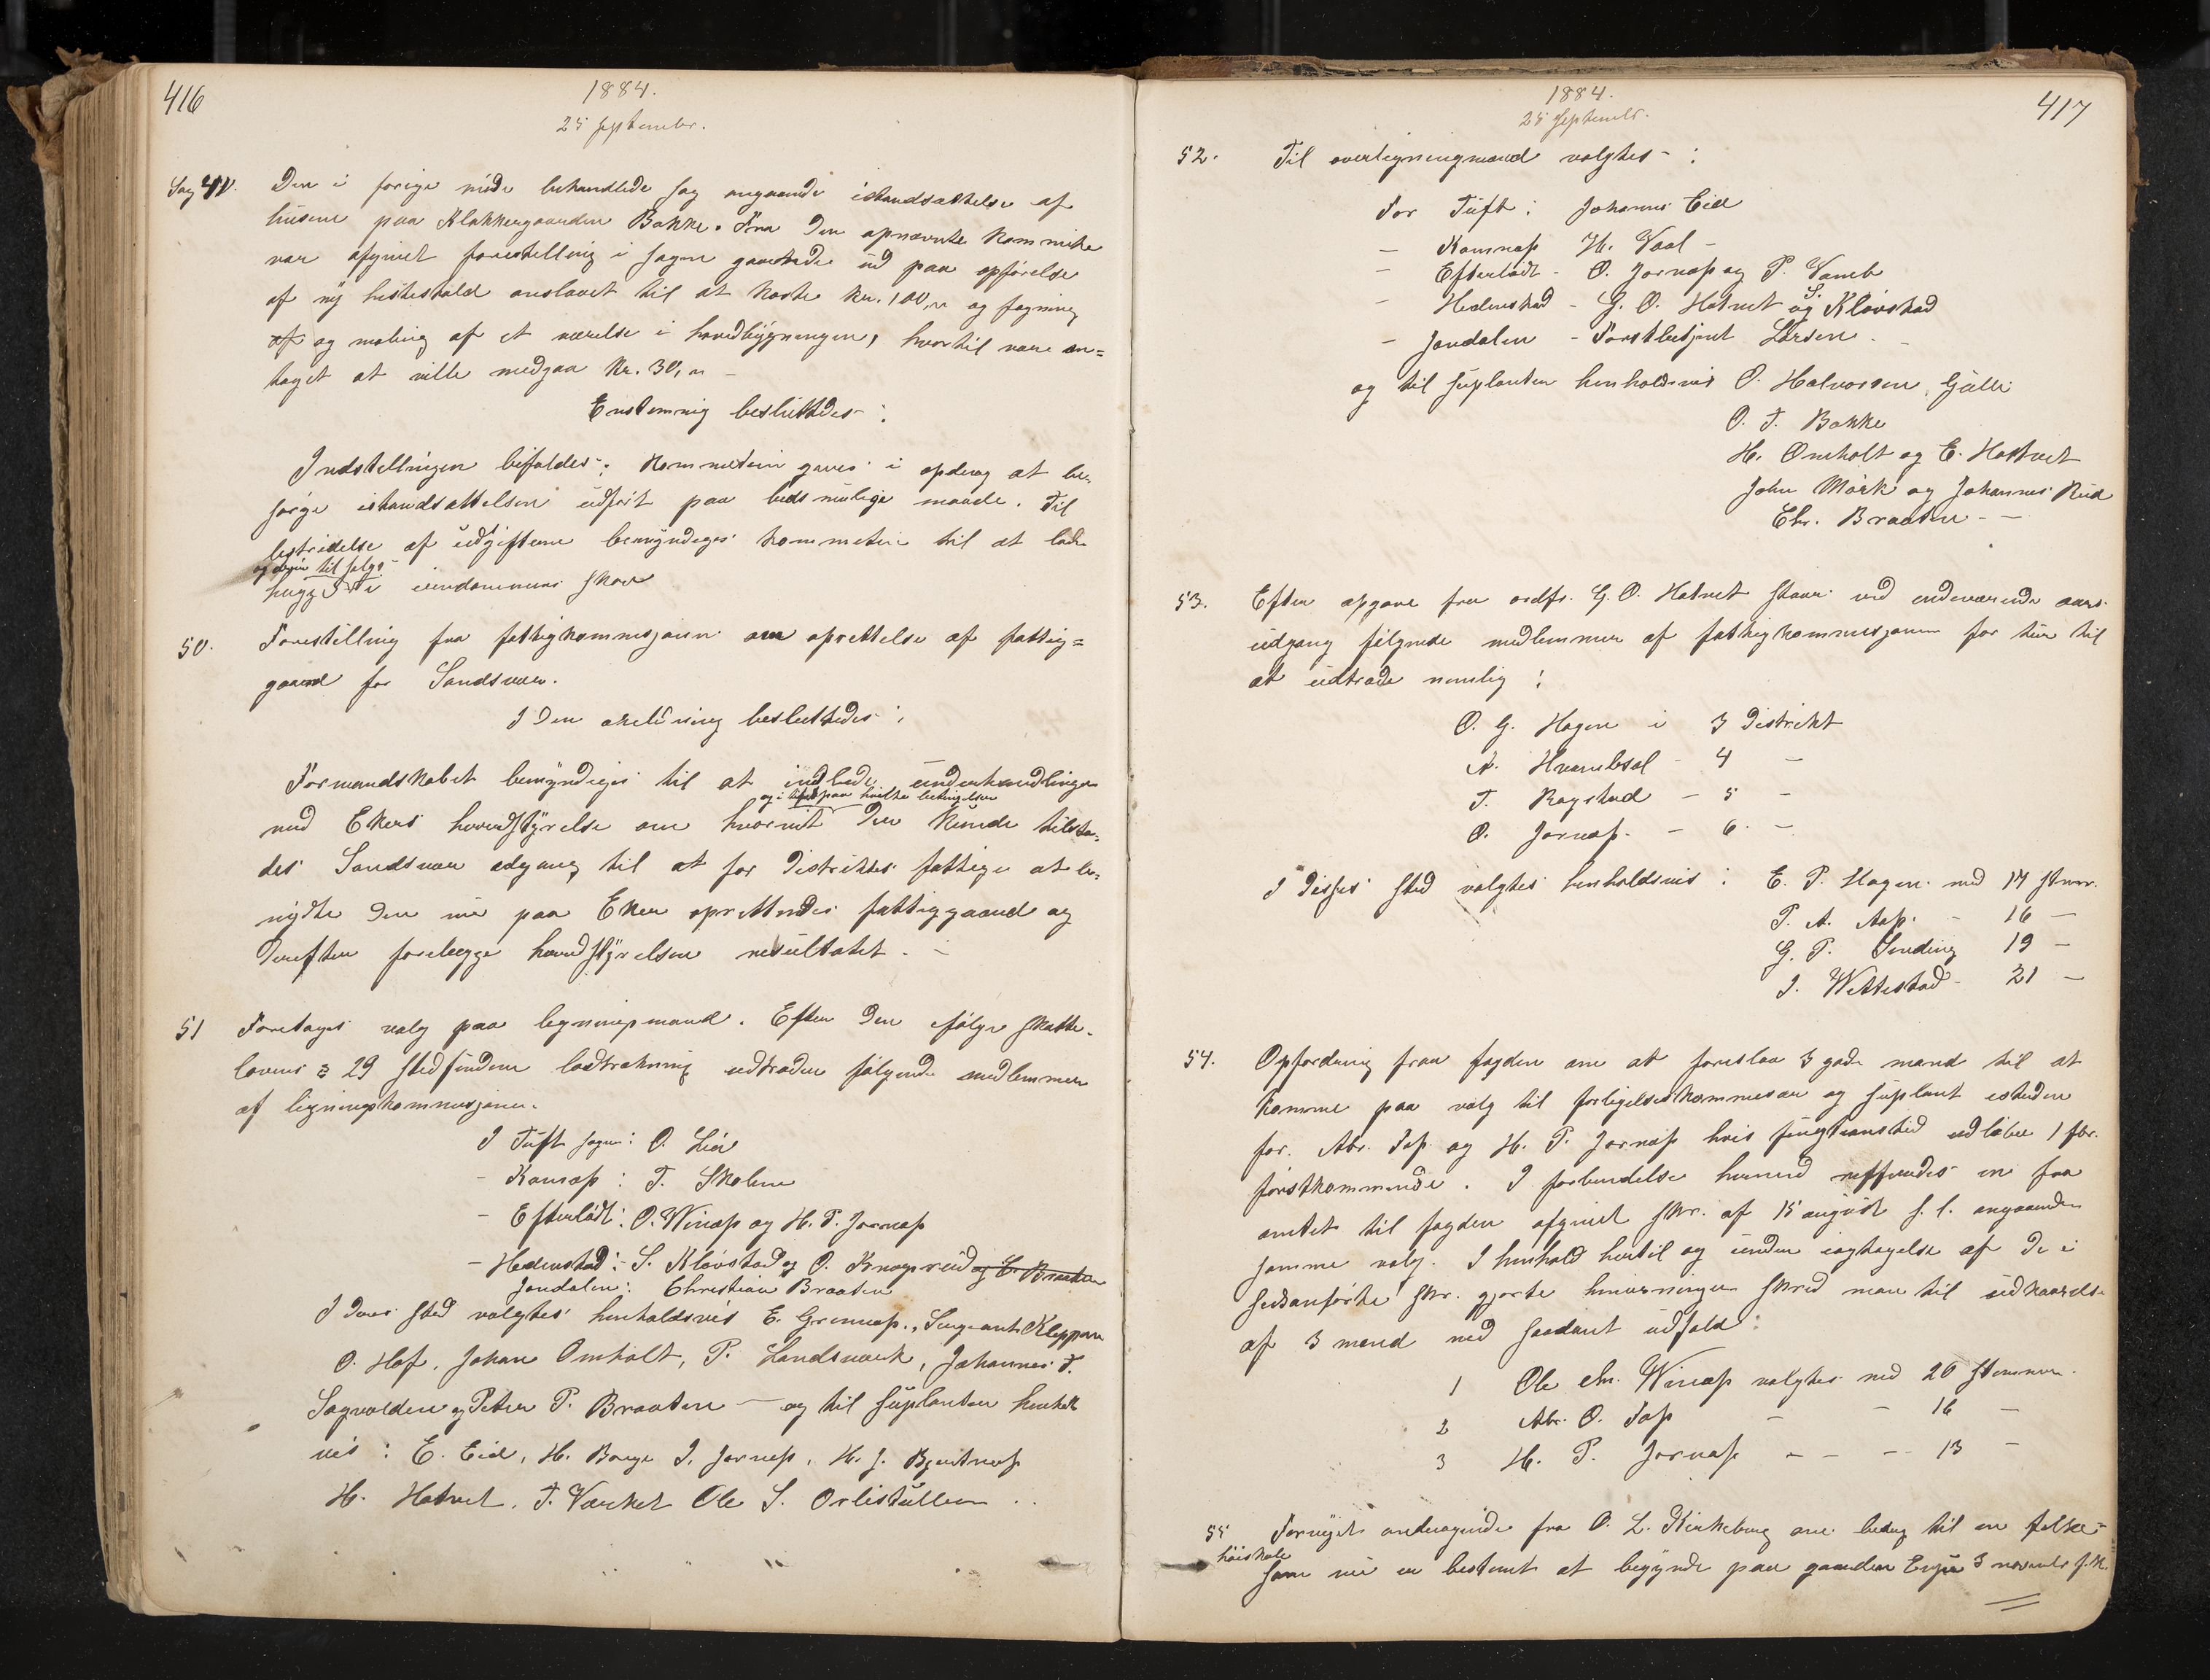 416
1884.
25 september.
Sag 49. Den i forige møde behandlede sag angaaende istandsættelse af
husene paa Klokkergaarden Bakke. Fra den opnævnte kommite
var afgivet forestilling i sagen gaaende ud paa opførelse
af ny hestestald anslaaet til at koste kr. 100,00 og
af og maling af et værelse i hovedbygningen, hvortil vare an=
taget at ville medgaa kr. 30,00 –
Enstemmig besluttedes:
Indstillingen bifaldes. Kommeteen gaves i opdrag at be-
sørge istandsættelsen udført paa bedst mulige maade. Til
bestridelse af udgifterne bemyndiges kommeteen til at lade
og til salgs
hugge i eiendommens skov
50. Forestilling fra fattigkommisjonen om oprettelse af fattig=
gaard for Sandsvær.
I den anledning besluttedes:
Formandskabet bemyndiges til at indlede underhandlinger
og i tilfælde paa hvilke betingelser
med Ekers herredstyrelse om hvorvidt der kunde tilste-
des Sandsvær adgang til at for distriktets fattige at be-
nytte den nu paa Eker oprettendes fattiggaard og
derefter forelægge herredstyrelsen resultatet. –
51 Foretages valg paa ligningsmænd. Efter den ifølge skatte-
lovens § 29 stedfundne lodtrækning udtræder følgende medlemmer
af ligningskommisjonen.
I Tuft sogn: O. Lia
- Komnæs: T. Skolem
- Eftelødt: O. Winæs og H. P. Jornæs
- Hedenstad: S. Kløvstad og O. Knapsrud og C. Braaten
Jondalen: Christian Braaten
I deres sted valgtes henholdsvis E. Grennes, Sergeant Kleppen
O. Hof, Johan Omholt, P. Landsverk, Johannes T.
Sagvolden og Peter P. Braaten – og til suplanter henholds
vis: E. Eid, H. Berge I. Jornæs, H. J. Bjentnes
H. Hotvet, T. Værket Ole S. Orlistullen ..
417
1884.
25 Septembr.
52. Til overligningmænd valgtes -:
For Tuft: Johannes Eid
– Komnæs H. Vaal –
– Eftelødt - O. Jornæs og P. Vamb
– Hedenstad - G. O. Hotvet og S. Kløvstad
– Jondalen - Forstbetjent Larsen. –
og til suplanter henholdsvis O. Halvorsen, Gulli
O. T. Bakke
H. Omholt og E. Hottvet
John Mørk og Johannes Rud
Chr. Braaten - –
53. Efter opgave fra ordfr. G. O. Hotvet staar ved indeværende aars
udgang følgende medlemmer af fattigkommisjonen for tur til
at udtræde nemlig:
O. G. Hagen i 3 distrikt
A. Hvambsal - 4 –
T. Ragstad – 5 –
O. Jornæs. – 6. –
I disses sted valgtes henholdsvis: E. P. Hagen med 17 stem.
P. A. Aas. – 16 –
G. P. Sunding 19 –
I. Wettestad - 21 –
54. Opfordring fra fogden om at foreslaa 3 gode mænd til at
komme paa valg til forligelseskommesær og suplant isteden
for. Abr. Fos og H. P. Jornæs hvis fungtionstid udløber 1 fbr.
førstkommende. I forbindelse hermed refferedes en fra
amtet til fogden afgivet skr. af 15 august s. l. angaaende
samme valg. I henhold hertil og under iagtagelse af de i
sidstanførte skr. gjorte henvisninger skred man til udkaarelse
af 3 mænd med saadant udfald:
1 Ole Chr. Winæs valgtes med 20 stemmer.
2 Abr. O. Fos – – 16 –
3 H. P. Jornæs – – – 13 –
55 Fornyet andragende fra O. L. Kirkeberg om bidrag til en folke-
høiskole
som nu er bestemt at begynde paa gaarden Enga 3 novembr f. k.